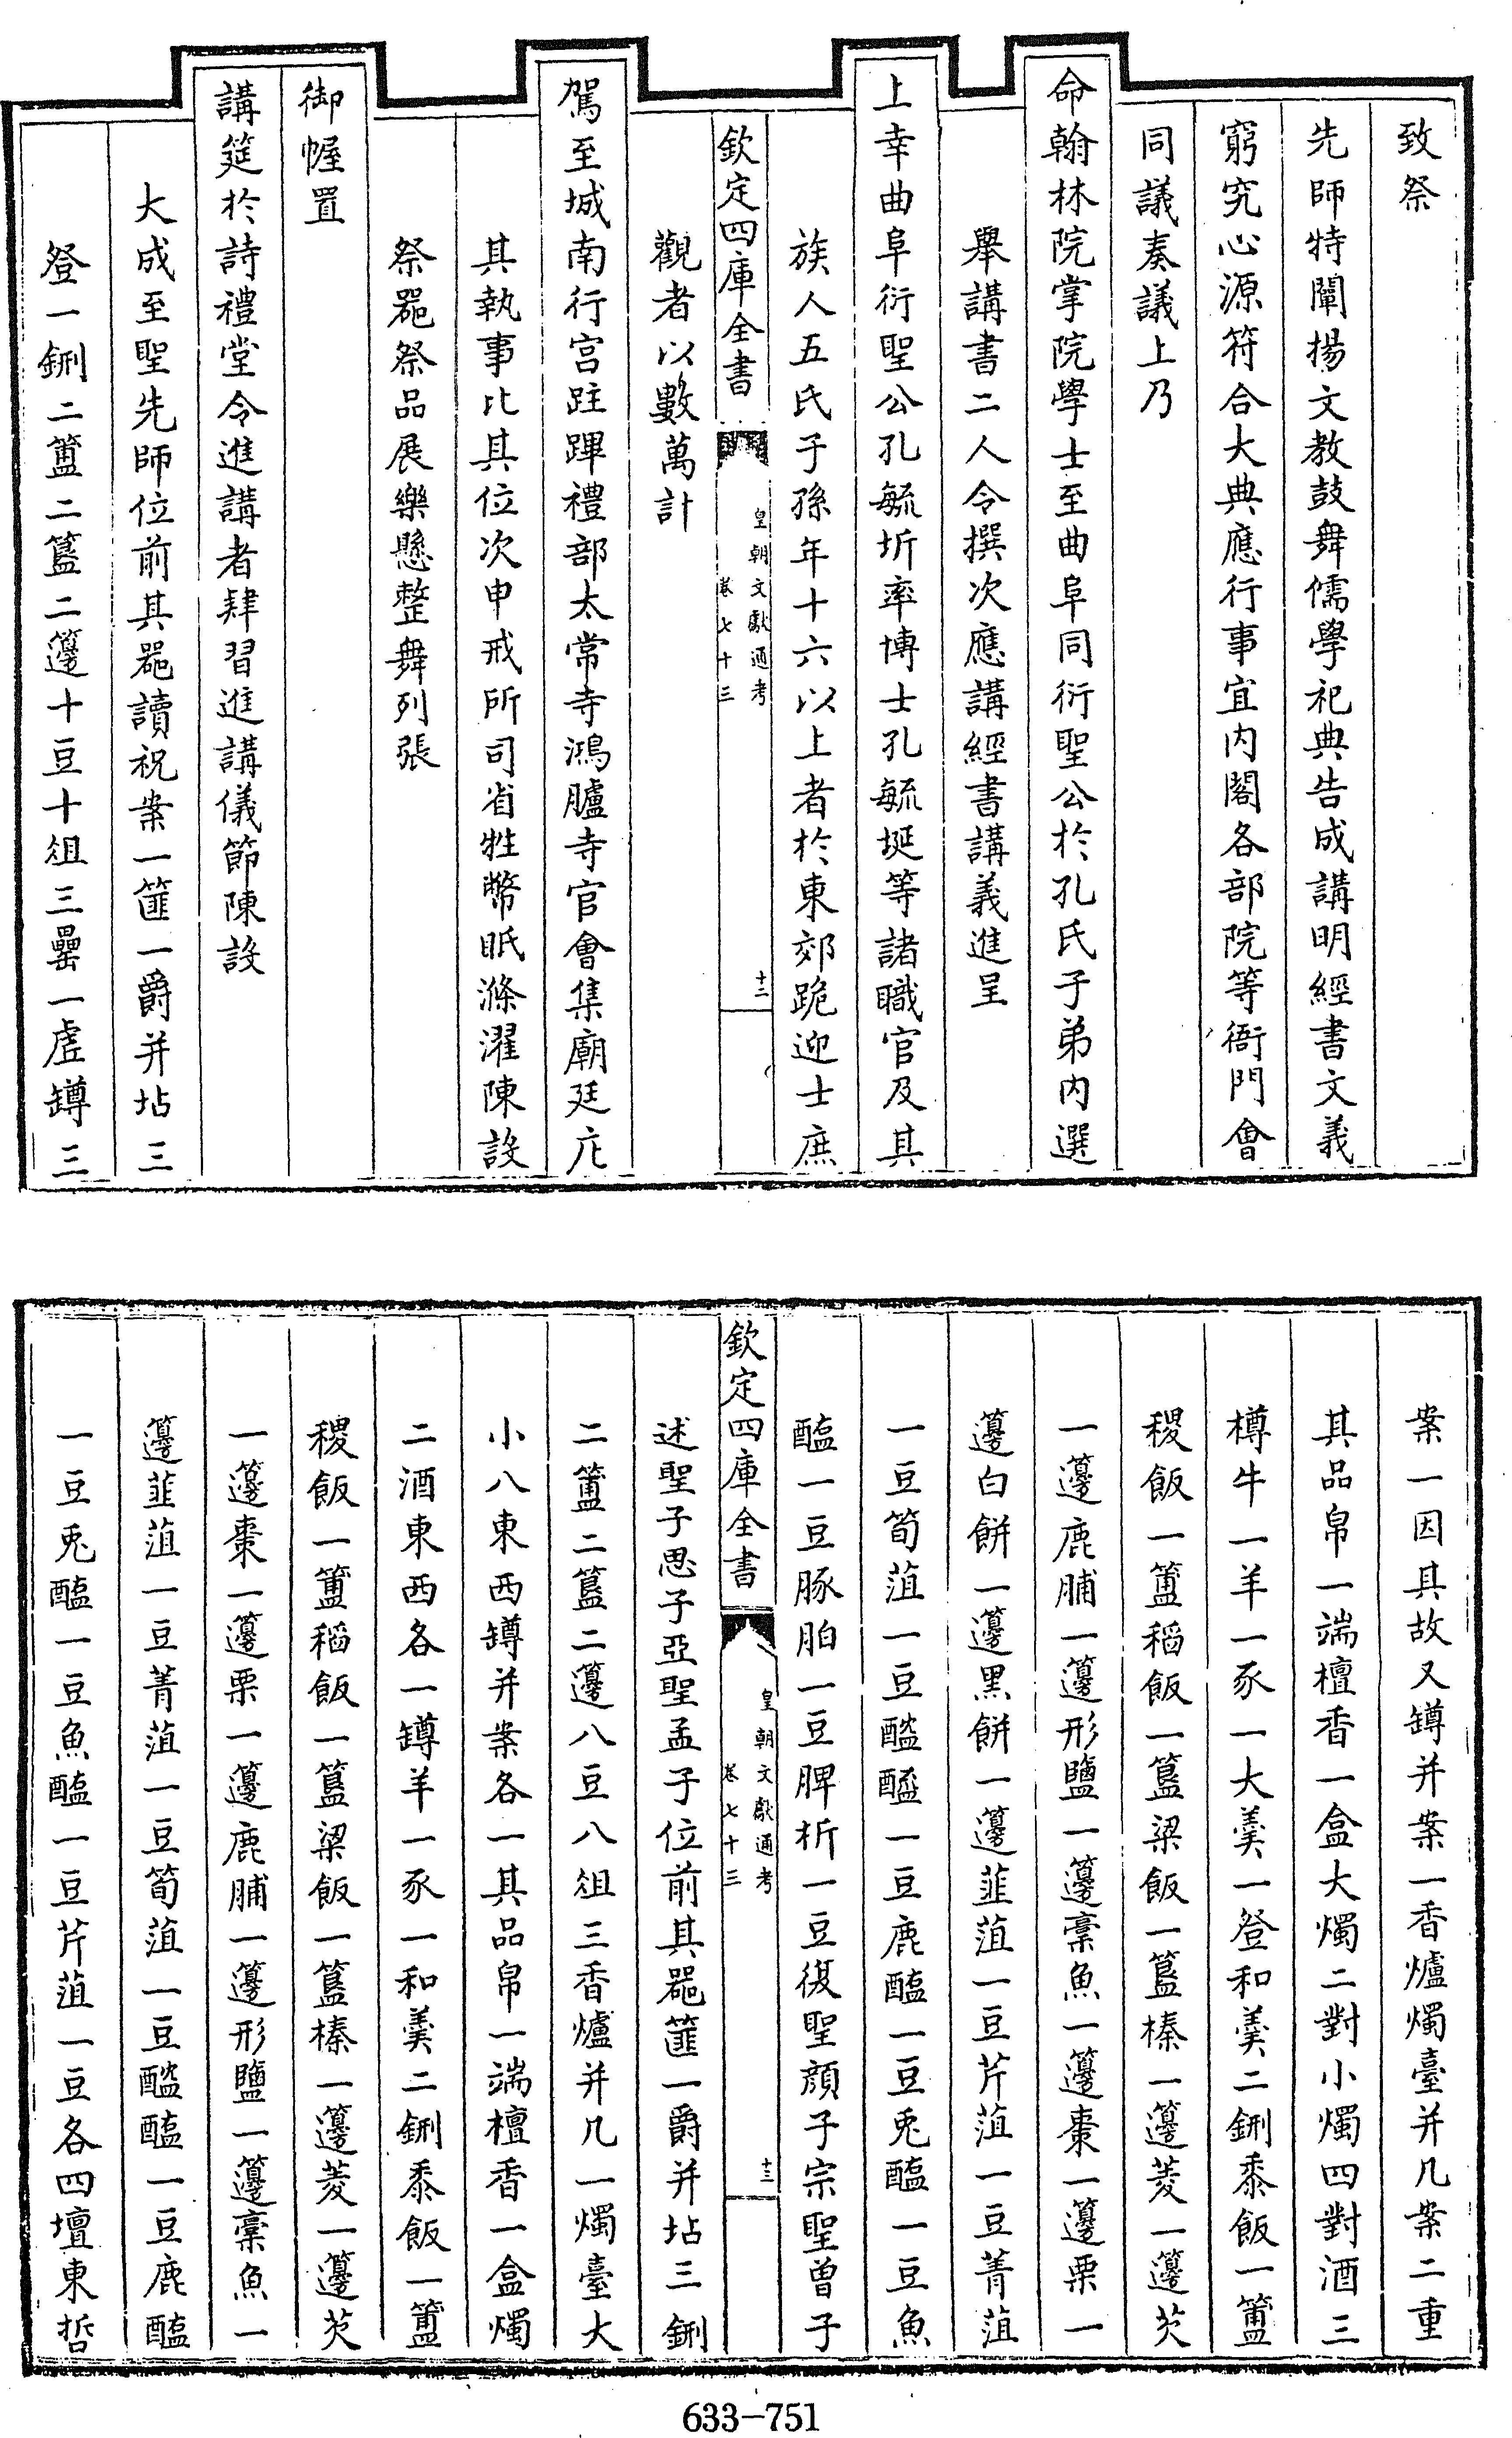 致祭
先師特闡揚文教鼓舞儒學祀典告成講明經書文義
窮究心源符合大典應行事宜内閣各部院等衙門會
同議奏議上乃
命翰林院掌院學士至曲阜同衍聖公於孔氏子弟内選
舉講書二人令撰次應講經書講義進呈
上幸曲阜衍聖公孔毓圻率博士孔毓埏等諸職官及其
族人五氏子孫年十六以上者於東郊跪迎士庶
欽定四庫全書
皇朝文獻通考
卷七十三
十二
觀者以數萬計
駕至城南行宫駐蹕禮部太常寺鴻臚寺官會集廟廷庀
其執事比其位次申戒所司省牲幣眂滌濯陳設
祭噐祭品展樂懸整舞列張
御幄置
講筵於詩禮堂令進講者肄習進講儀節陳設
大成至聖先師位前其噐讀祝案一篚一爵并坫三
登一鉶二簠二簋二籩十豆十俎三罍一虗罇三
案一因其故又罇并案一香爐燭臺并几案二重
其品帛一端檀香一盒大燭二對小燭四對酒三
樽牛一羊一豕一大羹一登和羹二鉶黍飯一簠
稷飯一簠稻飯一簋粱飯一簋榛一籩菱一籩芡
一籩鹿脯一籩形鹽一籩槀魚一籩棗一籩栗一
籩白餅一籩黑餅一籩韮菹一豆芹菹一豆菁菹
一豆筍菹一豆醓醢一豆鹿醢一豆兎醢一豆魚
醢一豆豚胉一豆脾析一豆復聖顔子宗聖曾子
欽定四庫全書
皇朝文獻通考
卷七十三
十三
述聖子思子亞聖孟子位前其噐篚一爵并坫三鉶
二簠二簋二籩八豆八俎三香爐并几一燭臺大
小八東西罇并案各一其品帛一端檀香一盒燭
二酒東西各一罇羊一豕一和羹二鉶黍飯一簠
稷飯一簠稻飯一簋粱飯一簋榛一籩菱一籩芡
一籩棗一籩栗一籩鹿脯一籩形鹽一籩槀魚一
籩韮菹一豆菁菹一豆筍菹一豆醓醢一豆鹿醢
一豆兎醢一豆魚醢一豆芹菹一豆各四壇東哲
633-751